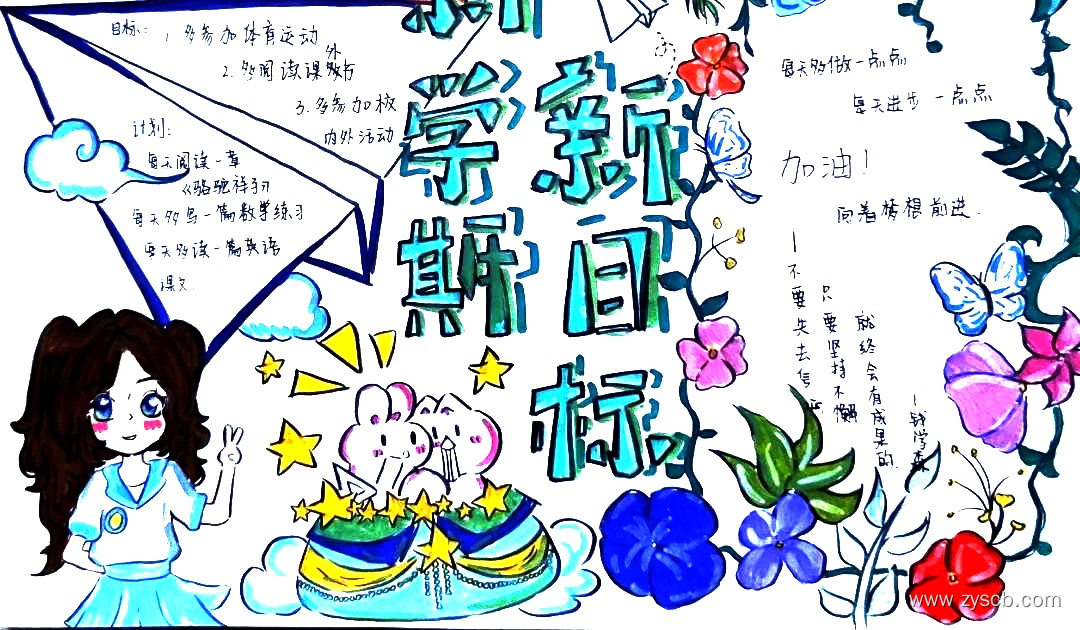 目标:
1 多参加体育运动
2. 多阅读课外
3. 多参加校
内外活动
计划:
每天阅读一章
《骆驼祥子》
每天多写一篇数学练习
每天多读一篇英语
课文.
新
学期
新目标
每天多做一点点
每天进步一点点
加油!
向着榜样前进.
—不要失去信
只要坚持不懈
就终会有成果的.
—钱学森
www.zyscb.com